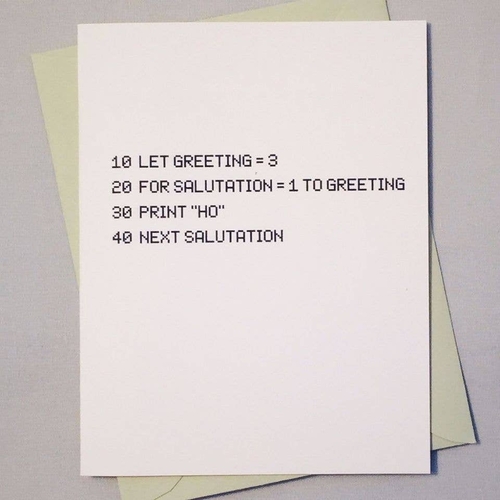 10 LET GREETING = 3
20 FOR SALUTATION = 1 TO GREETING
30 PRINT "HO"
40 NEXT SALUTATION